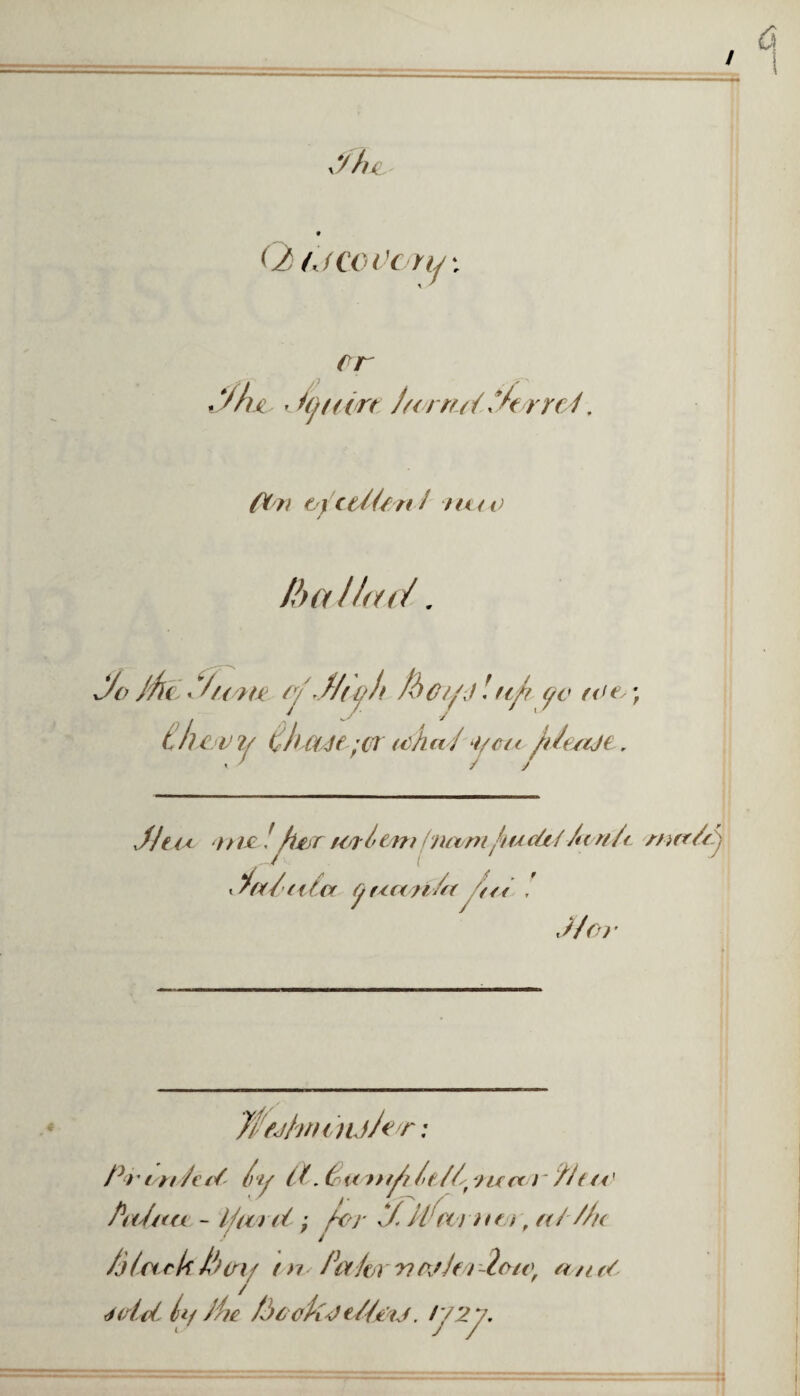 9
The
Discovery:
or
The Squire turnd Ferret.
An excellent new
Ballad.
To the Tune of High Boys! up go we;
Chevy Chase; or what you please.
Heu me! per urbem (nam pudet tanti mali)
Fabula quanta fui!
Hor
Westminster:
Printed by A. Campbell, near New
Palace-Yard; for T. Warner, at the
Black Boy in Pater noster-Row, and
sold by the Booksellers. 1727.